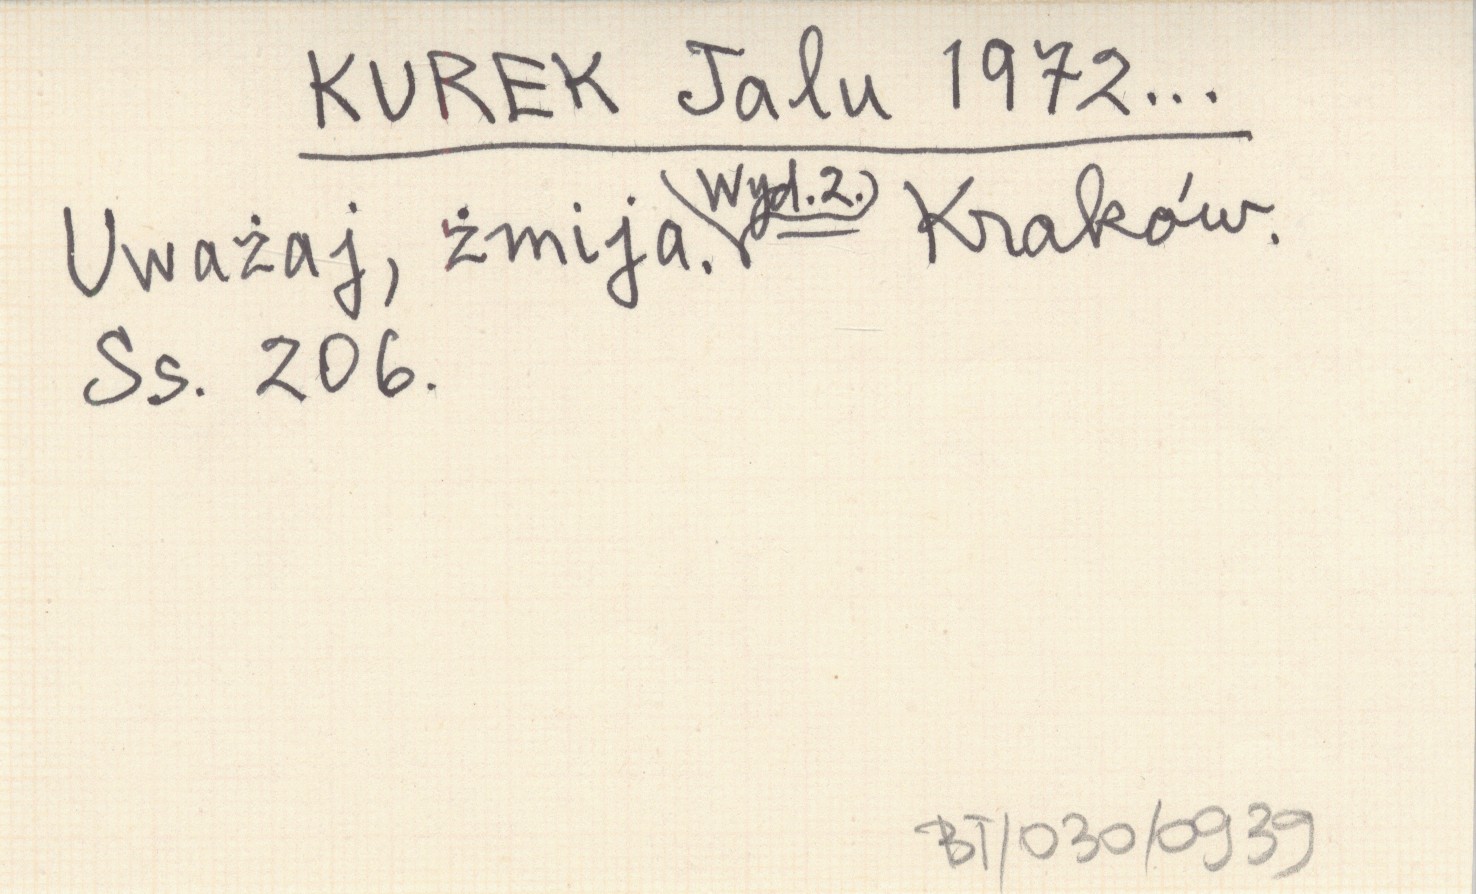 KUREK Jalu 1972...
Uważaj, żmija. Wyd. 2. Kraków.
Ss. 206.
BT/030/0939